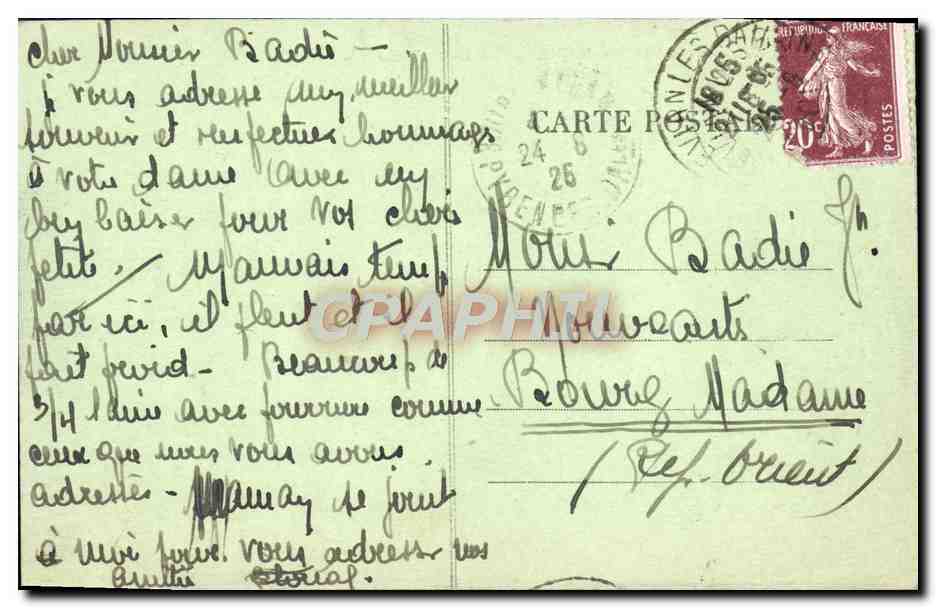 cher Monsieur Badie —
je vous adresse mes meilleur
souvenir et respectueux hommages
à votre dame avec un
gros baiser pour vos chers
petits. Mauvais temps
par ici, il pleut et il
fait froid — Beaucoup de
3/4 laine avec fourrure comme
ceux que nous vous avons
adressés — se joint
à moi pour vous adresser nos
amitiés
CARTE POSTALE
24 6
25
REPUBLIQUE FRANCAISE
20c
POSTES
Monsir Badie Jh.
Nouveautés
Bourg Madame
(Pyr. Orient)
CPAPHIL